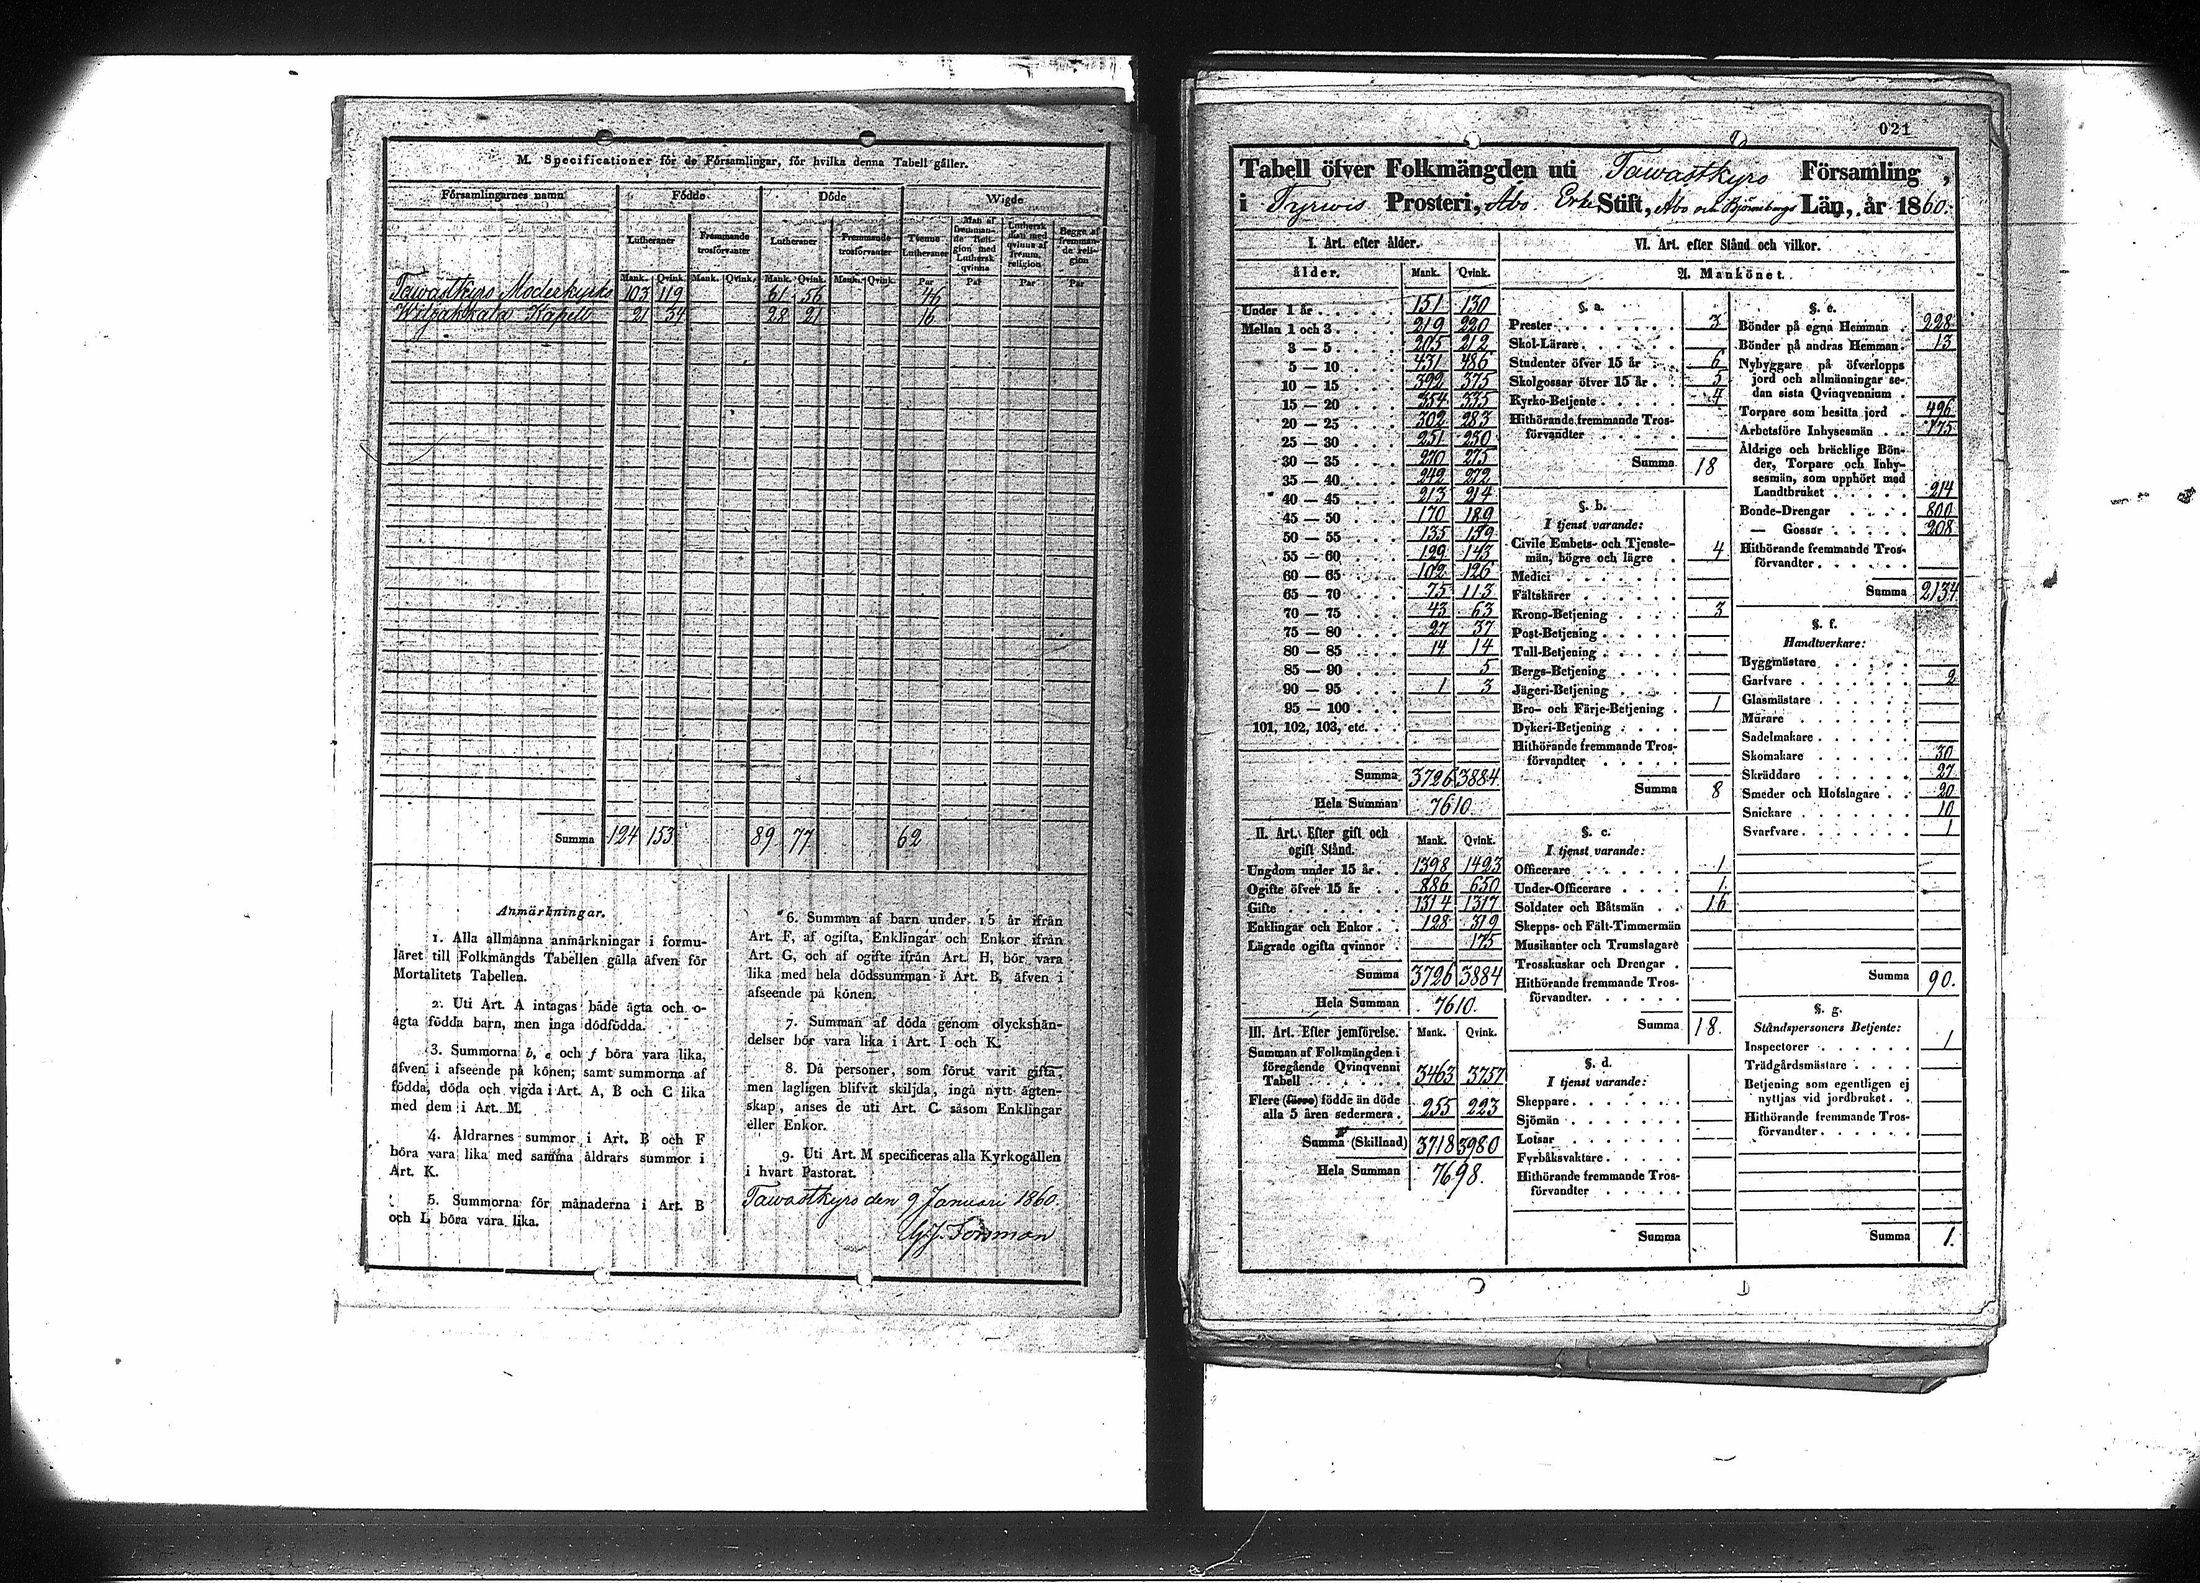 M. Specificationer för de Församlingar, för hvilka denna Tabell gäller.
Församlingarnes namn Födde Döde Wigde
Lutheraner Fremmande trosförvanter Lutheraner Fremmande trosförvanter Tvenne Lutheraner Man af fremmande Religion med Luthersk qvinna Luthersk man med qvinna af fremm. religion Begge af fremmande religion
Mank. Qvink. Mank. Qvink. Mank. Qvink. Mank. Qvink. Par Par Par Par
Tawastkyro Moderkyrka 103 119 61 56 46
Kapell 21 34 28 21 16
Summa 124 153 89 77 62
Anmärkningar.
1. Alla allmänna anmärkningar i formu-
läret till Folkmängds Tabellen gälla äfven för
Mortalitets Tabellen.
2. Uti Art. A intagas både ägta och o-
ägta födda barn, men inga dödfödda.
3. Summorna b, e och f böra vara lika,
äfven i afseende på könen; samt summorna af
födda, döda och vigda i Art. A, B och C lika
med dem i Art. M.
4. Åldrarnes summor i Art. B och F
böra vara lika med samma åldrars summor i
Art. K.
5. Summorna för månaderna i Art. B
och L böra vara lika.
6. Summan af barn under 15 år ifrån
Art. F, af ogifta, Enklingar och Enkor ifrån
Art. G, och af gifte ifrån Art. H, bör vara
lika med hela dödssumman i Art. B, äfven i
afseende på könen.
7. Summan af döda genom olyckshän-
delser bör vara lika i Art. I och K.
8. Då personer, som förut varit gifta,
men lagligen blifvit skiljda, ingå nytt ägten-
skap, anses de uti Art. C såsom Enklingar
eller Enkor.
9. Uti Art. M specificeras alla Kyrkogällen
i hvart Pastorat.
Tawastkyro den 9 Januari 1860.
G. J. Forsman
021
Tabell öfver Folkmängden uti Tawastkyro Församling,
i Tyrwis Prosteri, Åbo Erke Stift, Åbo och Björneborgs Län, år 1860.
I. Art. efter ålder.
ålder. Mank. Qvink.
Under 1 år 151 130
Mellan 1 och 3 219 220
3 — 5 205 212
5 — 10 431 486
10 — 15 392 375
15 — 20 354 335
20 — 25 302 283
25 — 30 251 250
30 — 35 270 275
35 — 40 242 272
40 — 45 213 214
45 — 50 170 189
50 — 55 135 159
55 — 60 129 143
60 — 65 102 126
65 — 70 75 113
70 — 75 43 63
75 — 80 27 37
80 — 85 14 14
85 — 90 5
90 — 95 1 3
95 — 100
101, 102, 103, etc.
Summa 3726 3884
Hela Summan 7610.
II. Art. Efter gift och ogift Stånd. Mank. Qvink.
Ungdom under 15 år 1398 1423
Ogifte öfver 15 år 886 650
Gifte 1314 1317
Enklingar och Enkor 128 319
Lägrade ogifta qvinnor 175
Summa 3726 3884
Hela Summan 7610.
III. Art. Efter jemförelse. Mank. Qvink.
Summan af Folkmängden i
föregående Qvinqvenni
Tabell 3463 3757
Flere (färre) födde än döde
alla 5 åren sedermera 255 223
Summa (Skillnad) 3718 3980
Hela Summan 7698.
VI. Art. efter Stånd och vilkor.
A. Mankönet.
§. a.
Prester 3
Skol-Lärare
Studenter öfver 15 år 6
Skolgossar öfver 15 år 5
Kyrko-Betjente 4
Hithörande fremmande Tros-
förvandter
Summa 18
§. b.
I tjenst varande:
Civile Embets- och Tjenste-
män, högre och lägre 4
Medici
Fältskärer
Krono-Betjening 3
Post-Betjening
Tull-Betjening
Bergs-Betjening
Jägeri-Betjening
Bro- och Färje-Betjening 1
Dykeri-Betjening
Hithörande fremmande Tros-
förvandter
Summa 8
§. c.
I tjenst varande:
Officerare 1
Under-Officerare 1
Soldater och Båtsmän 16
Skepps- och Fält-Timmermän
Musikanter och Trumslagare
Trosskuskar och Drengar
Hithörande fremmande Tros-
förvandter
Summa 18.
§. d.
I tjenst varande:
Skeppare
Sjömän
Lotsar
Fyrbåksvaktare
Hithörande fremmande Tros-
förvandter
Summa
§. e.
Bönder på egna Hemman 228
Bönder på andras Hemman 13
Nybyggare på öfverlopps
jord och allmänningar se-
dan sista Qvinqvennium
Torpare som besitta jord 496
Arbetsföre Inhysesmän 775
Åldrige och bräcklige Bön-
der, Torpare och Inhy-
sesmän, som upphört med
Landtbruket 214
Bonde-Drengar 800
— Gossar 208
Hithörande fremmande Tros-
förvandter
Summa 2134
§. f.
Handtverkare:
Byggmästare
Garfvare 2
Glasmästare
Murare
Sadelmakare
Skomakare 30
Skräddare 27
Smeder och Hofslagare 20
Snickare 10
Svarfvare 1
Summa 90.
§. g.
Ståndspersoners Betjente:
Inspectorer 1
Trädgårdsmästare
Betjening som egentligen ej
nyttjas vid jordbruket
Hithörande fremmande Tros-
förvandter
Summa 1.